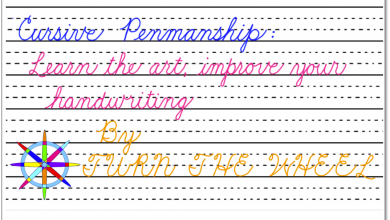 Cursive Penmanship:
Learn the art, improve your
handwriting
By
TURN THE WHEEL